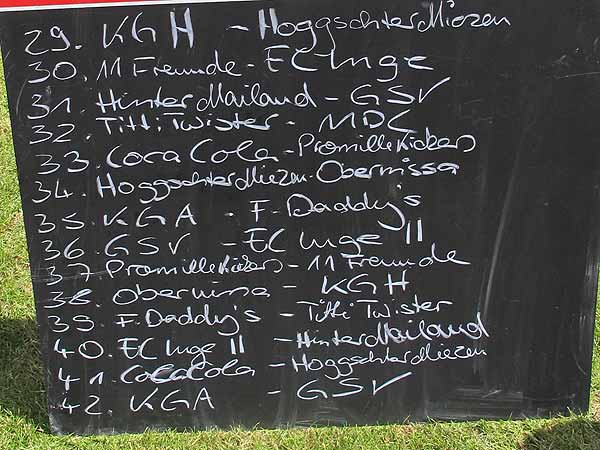 29. KGH - Hoggschter Miezen
30. 11 Freunde - EC Inge
31. Hinter Mailand - GSV
32. Titti Twister - MDC
33. Coca Cola - Promille Kickers
34. Hoggschter Miezen - Obernissa
35. KGA - F. Daddy's
36. GSV - EC Inge II
37. Promille Kickers - 11 Freunde
38. Obernissa - KGH
39. F. Daddy's - Titti Twister
40. EC Inge II - Hinter Mailand
41. Coca Cola - Hoggschter Miezen
42. KGA - GSV